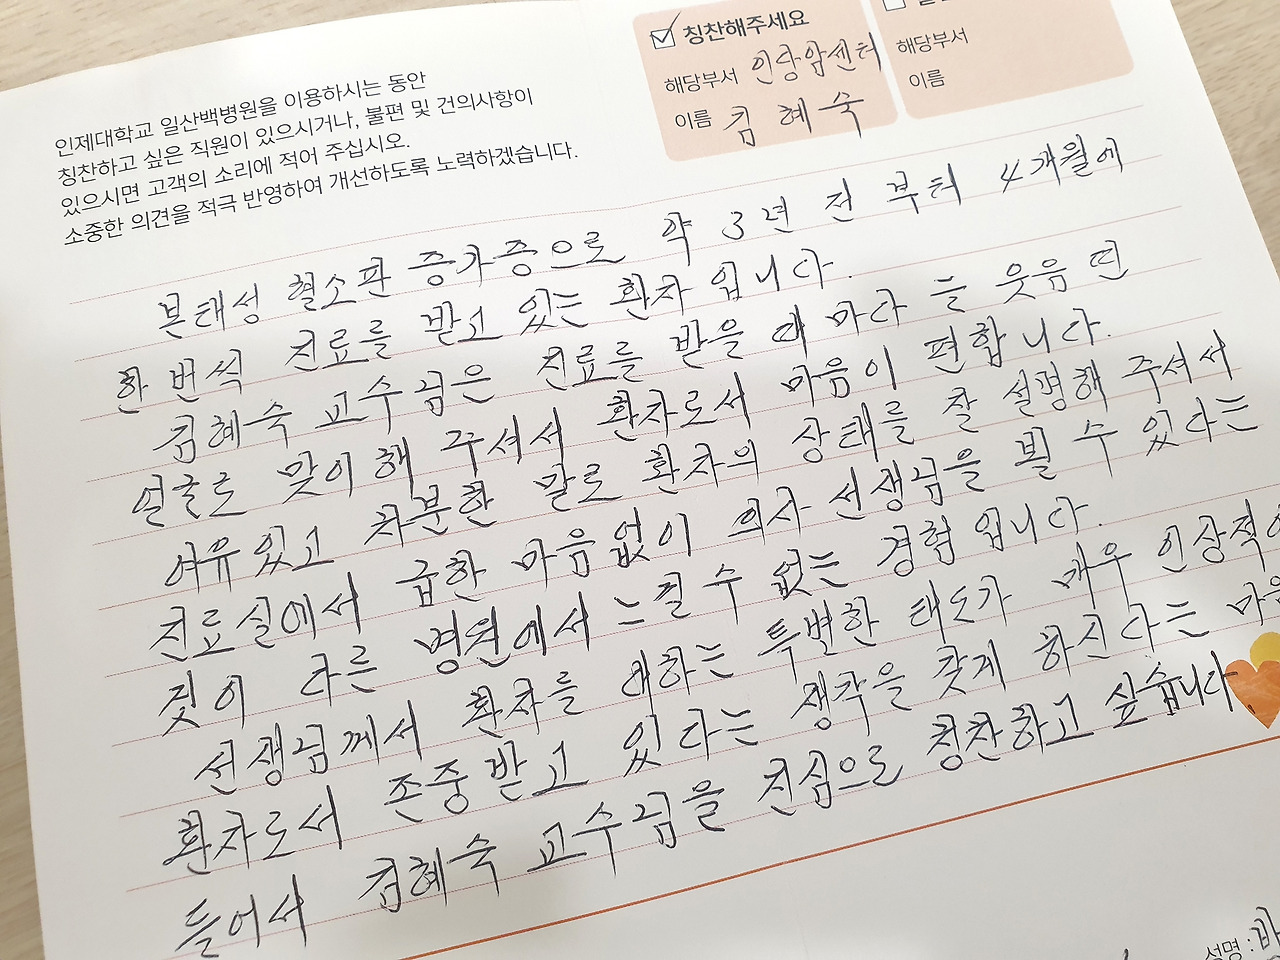 인제대학교 일산백병원을 이용하시는 동안
칭찬하고 싶은 직원이 있으시거나, 불편 및 건의사항이
있으시면 고객의 소리에 적어 주십시오.
소중한 의견을 적극 반영하여 개선하도록 노력하겠습니다.
칭찬해주세요
해당부서 인당암센터
이름 김혜숙
해당부서
이름
본태성 혈소판 증가증으로 약 3년 전 부터 4개월에
한 번씩 진료를 받고 있는 환자 입니다.
김혜숙 교수님은 진료를 받을 때 마다 늘 웃음 띤
얼굴로 맞이해 주셔서 환자로서 마음이 편합니다.
여유있고 차분한 말로 환자의 상태를 잘 설명해 주셔서
진료실에서 급한 마음없이 의사 선생님을 뵐 수 있다는
것이 다른 병원에서 느낄 수 없는 경험 입니다.
선생님께서 환자를 대하는 특별한 태도가 매우 인상적이
환자로서 존중받고 있다는 생각을 갖게 하신다는 마음
들어서 김혜숙 교수님을 진심으로 칭찬하고 싶습니다
성명 : 박